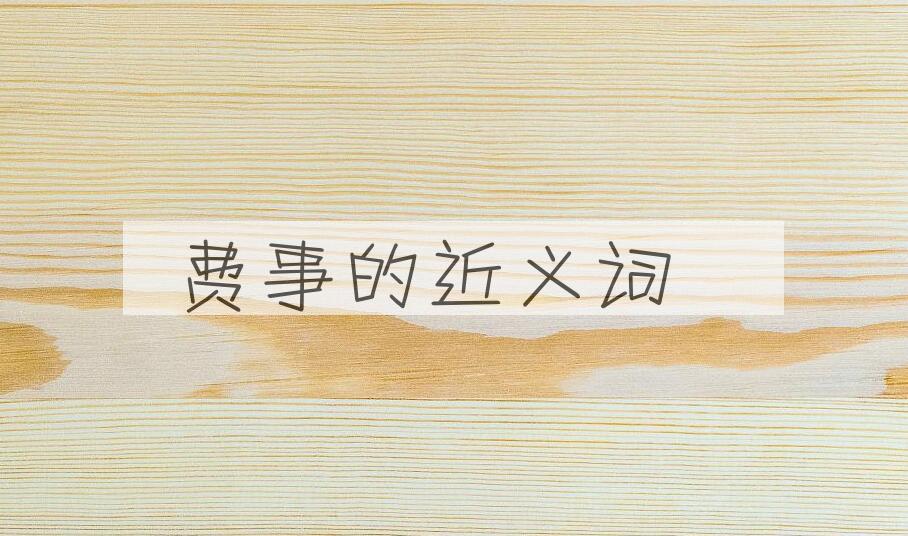 费事的近义词